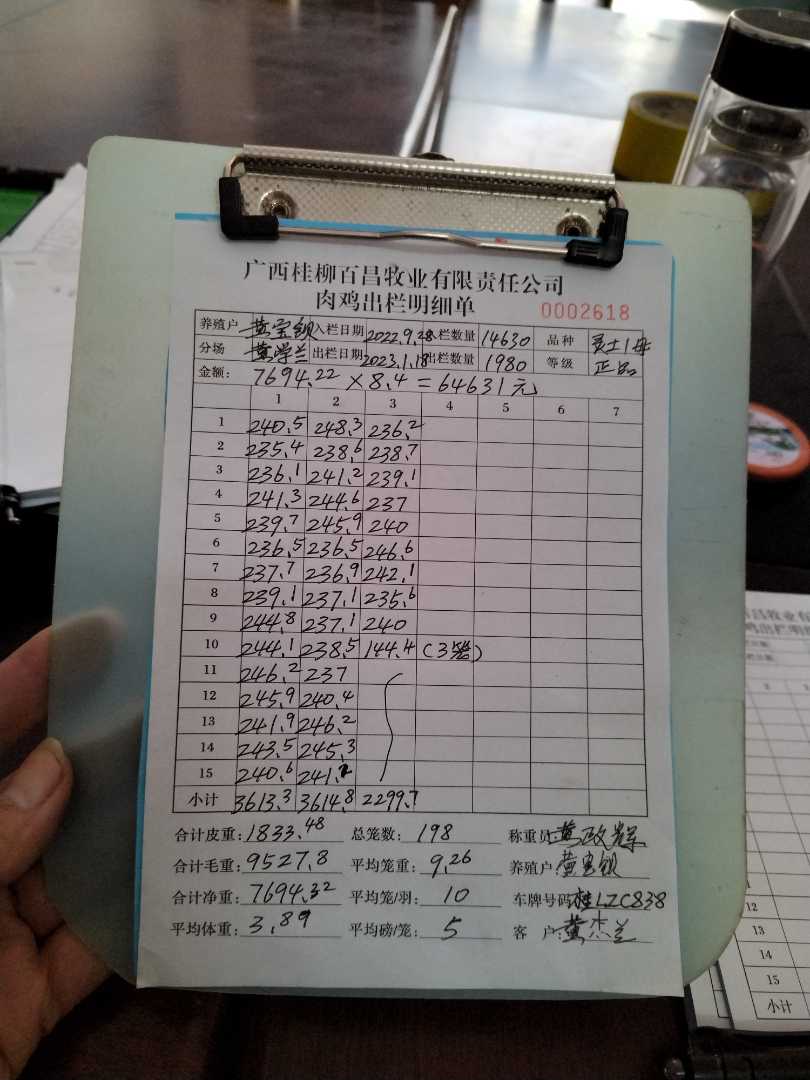 广西桂柳百昌牧业有限责任公司
肉鸡出栏明细单 0002618
养殖户 黄宝钡 入栏日期 2022.9.28 入栏数量 14630 品种 灵土1母
分场 黄学兰 出栏日期 2023.1.18 出栏数量 1980 等级 正品
金额: 7694.22×8.4=64631元
1 2 3 4 5 6 7
1 240.5 248.3 236.2
2 235.4 238.6 238.7
3 236.1 241.2 239.1
4 241.3 244.6 237
5 239.7 245.9 240
6 236.5 236.5 246.6
7 237.7 236.9 242.1
8 239.1 237.1 235.6
9 244.8 237.1 240
10 244.1 238.5 144.4 (3笼)
11 246.2 237
12 245.9 240.4
13 241.9 246.2
14 243.5 245.3
15 240.6 241.2
小计 3613.3 3614.8 2299.7
合计皮重: 1833.48 总笼数: 198 称重员 黄政辉
合计毛重: 9527.8 平均笼重: 9.26 养殖户 黄宝钡
合计净重: 7694.32 平均笼/羽: 10 车牌号码 桂LZC838
平均体重: 3.89 平均磅/笼: 5 客 户: 黄杰兰
12
13
14
15
小计